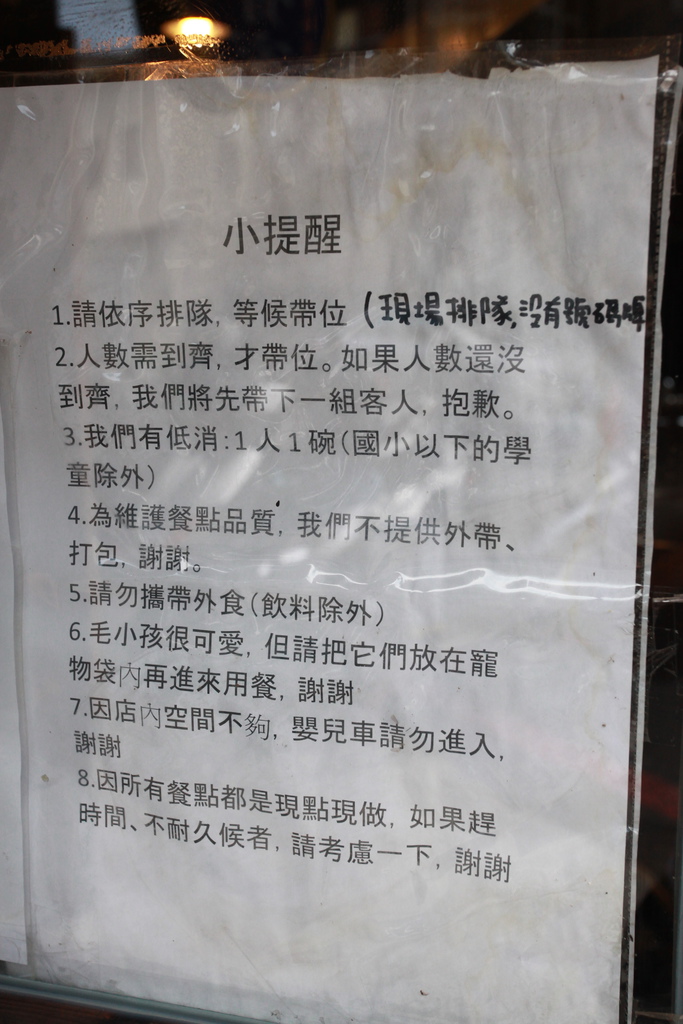 小提醒
1.請依序排隊, 等候帶位 (現場排隊,沒有號碼牌
2.人數需到齊, 才帶位。如果人數還沒
到齊, 我們將先帶下一組客人, 抱歉。
3.我們有低消:1人1碗(國小以下的學
童除外)
4.為維護餐點品質, 我們不提供外帶、
打包, 謝謝。
5.請勿攜帶外食(飲料除外)
6.毛小孩很可愛, 但請把它們放在寵
物袋內再進來用餐, 謝謝
7.因店內空間不夠, 嬰兒車請勿進入,
謝謝
8.因所有餐點都是現點現做, 如果趕
時間、不耐久候者, 請考慮一下, 謝謝